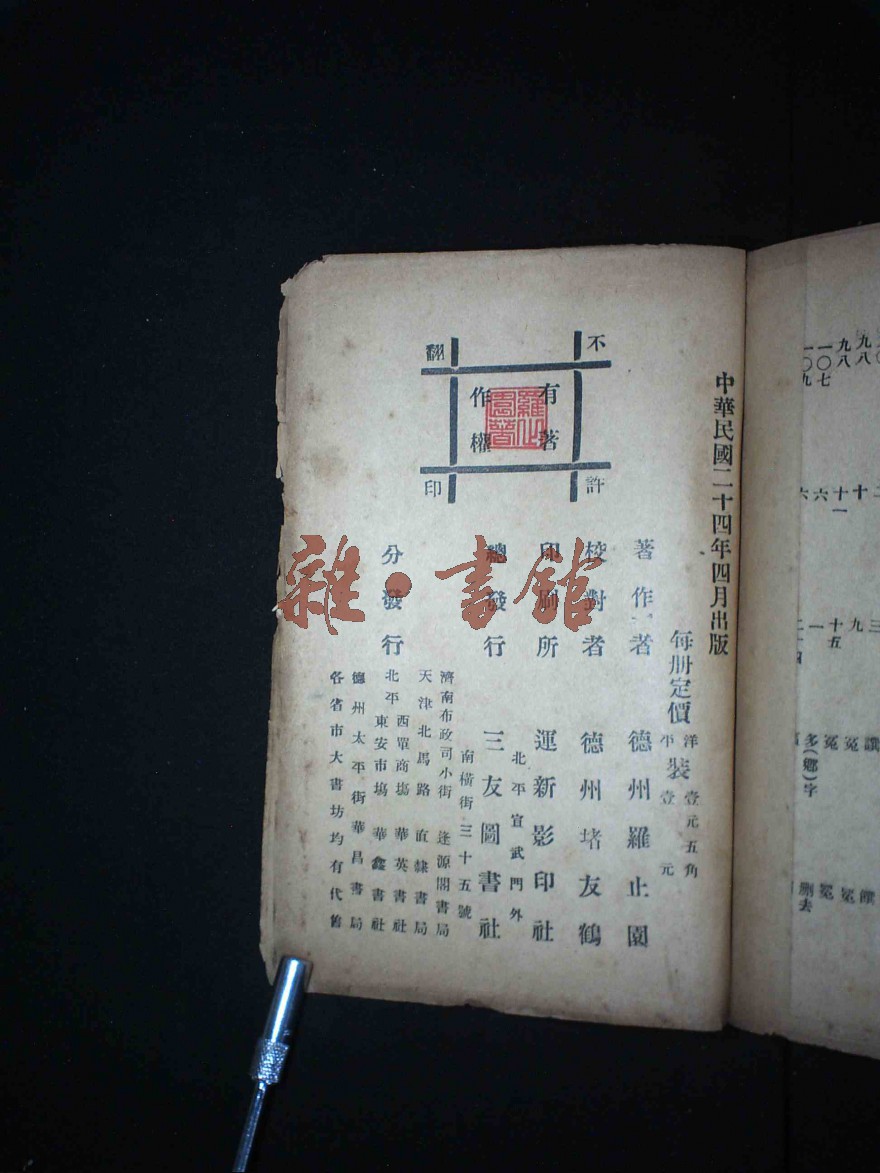 中華民國二十四年四月出版
每册定價
洋裝 壹元五角
平裝 壹元
著作者 德州羅止園
校對者 德州堵友鶴
印刷所 運新影印社
北平宣武門外
總發行 三友圖書社
南橫街三十五號
分發行
濟南布政司小街 逢源閣書局
天津北馬路 直隸書局
北平 西單商塲 華英書社
東安市塲 華鑫書社
德州太平街華昌書局
各省市大書坊均有代售
不許翻印
有著作權
羅止園著
雜·書館
九八
一〇七
一〇九
十一
六
九
一
十五
冤
冤
多(鄉)字
饌
冤
冤
刪去